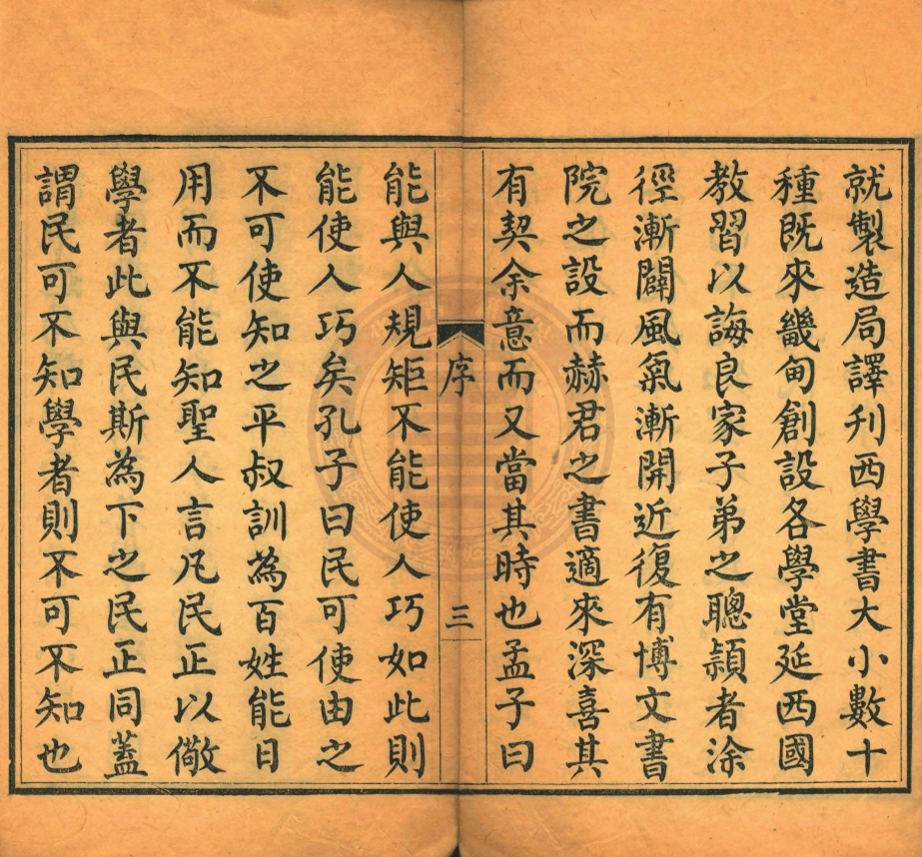 就製造局譯刊西學書大小數十
種既來畿甸創設各學堂延西國
教習以誨良家子弟之聰穎者涂
徑漸闢風氣漸開近復有博文書
院之設而赫君之書適來深喜其
有契余意而又當其時也孟子曰
序
三
能與人規矩不能使人巧如此則
能使人巧矣孔子曰民可使由之
不可使知之平叔訓為百姓能日
用而不能知聖人言凡民正以儆
學者此與民斯為下之民正同蓋
謂民可不知學者則不可不知也